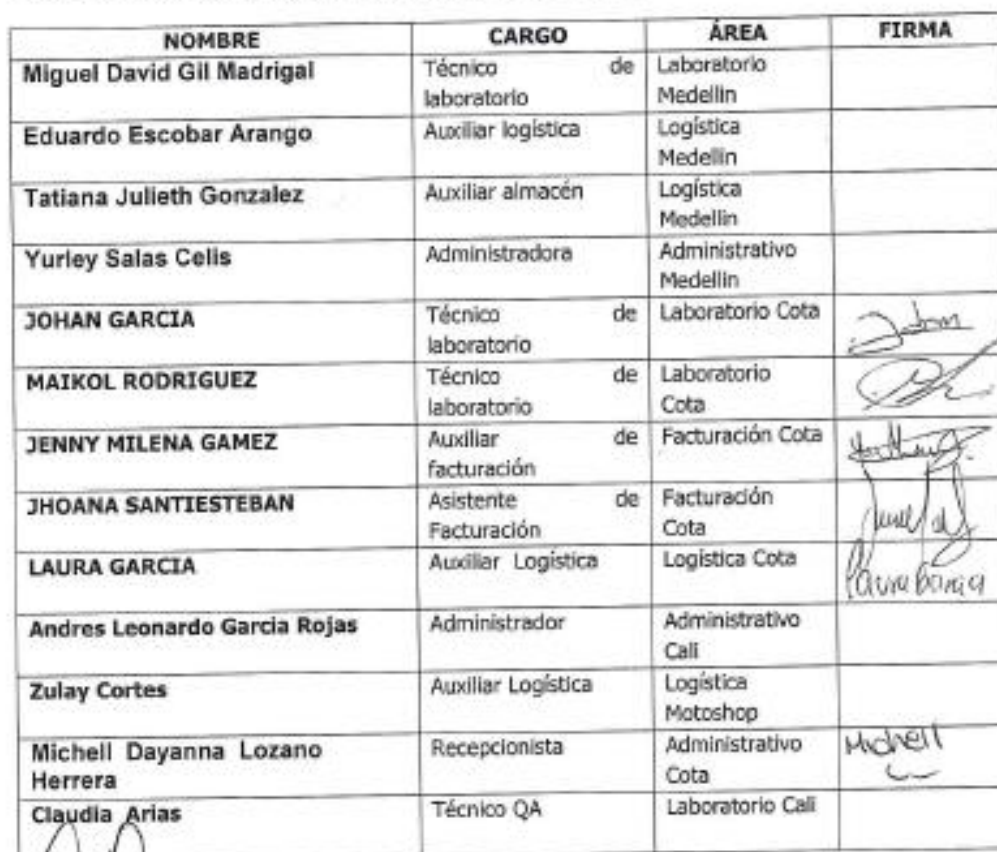 NOMBRE CARGO ÁREA FIRMA
Miguel David Gil Madrigal Técnico de Laboratorio
laboratorio Medellin
Eduardo Escobar Arango Auxiliar logística Logística
Medellin
Tatiana Julieth Gonzalez Auxiliar almacén Logística
Medellin
Yurley Salas Celis Administradora Administrativo
Medellin
JOHAN GARCIA Técnico de Laboratorio Cota
laboratorio
MAIKOL RODRIGUEZ Técnico de Laboratorio
laboratorio Cota
JENNY MILENA GAMEZ Auxiliar de Facturación Cota
facturación
JHOANA SANTIESTEBAN Asistente de Facturación
Facturación Cota
LAURA GARCIA Auxiliar Logística Logística Cota
Laura Garcia
Andres Leonardo Garcia Rojas Administrador Administrativo
Cali
Zulay Cortes Auxiliar Logística Logística
Motoshop
Michell Dayanna Lozano Recepcionista Administrativo Michell
Herrera Cota
Claudia Arias Técnico QA Laboratorio Cali